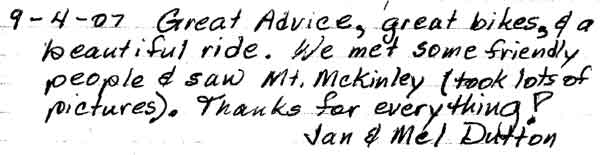 9-4-07 Great Advice, great bikes, & a
beautiful ride. We met some friendly
people & saw Mt. McKinley (took lots of
pictures). Thanks for everything!
Jan & Mel Dutton